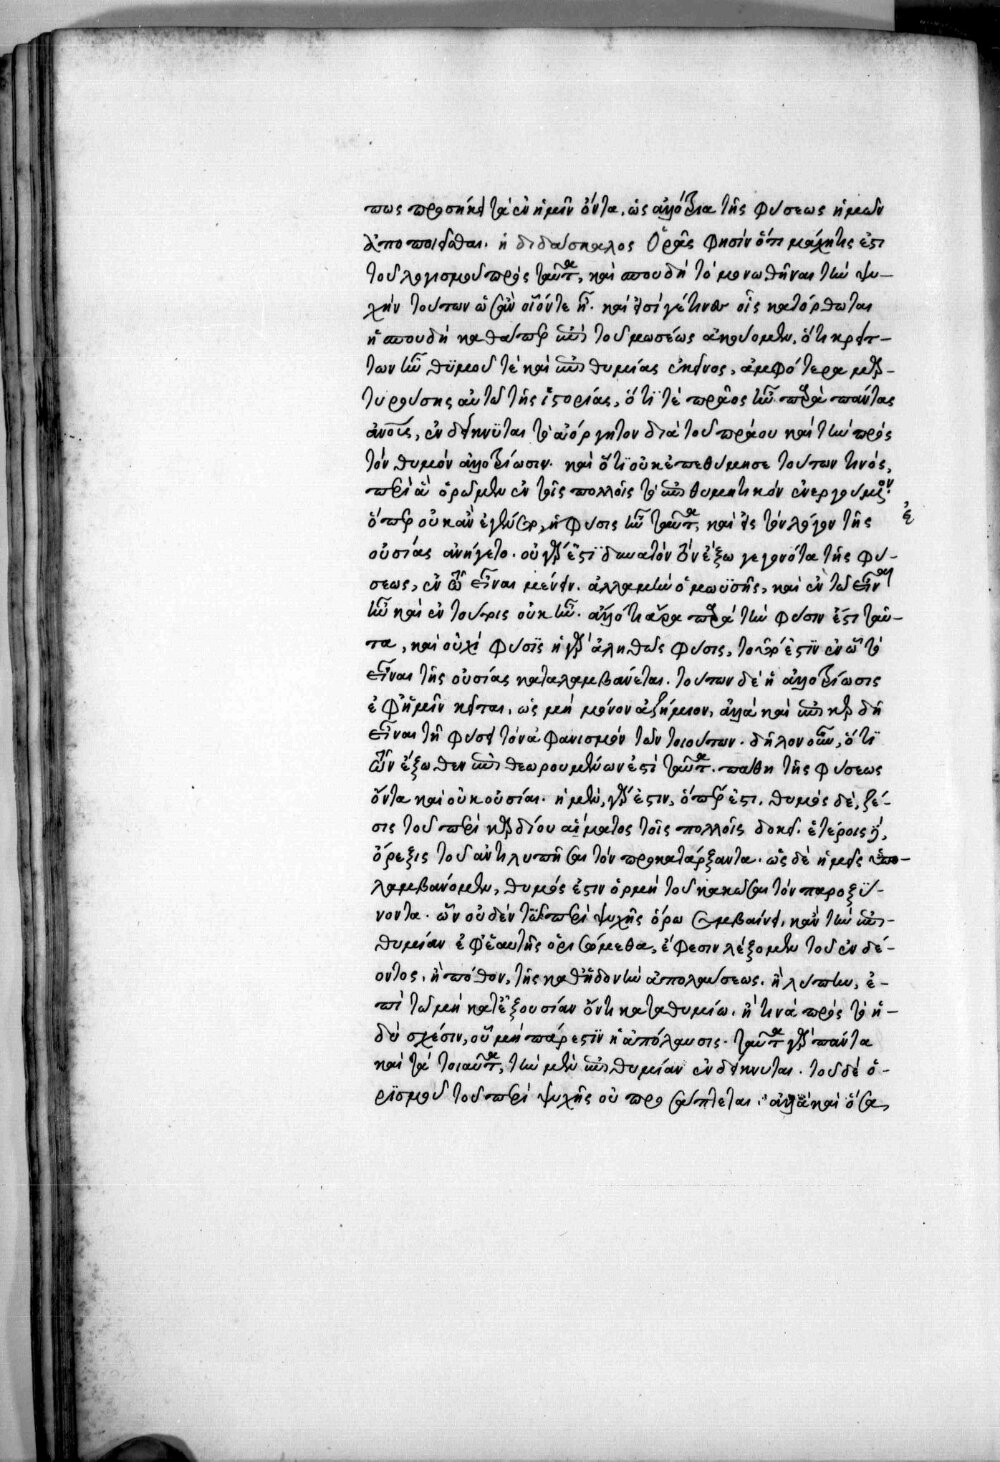 πως προσήκει τὰ ἐν ἡμῖν ὄντα, ὡς ἀλλότρια τῆς φύσεως ἡμῶν
ἀποποιεῖσθαι. ἡ διδάσκαλος Ὁρᾷς φησὶν ὅτι μάχη τίς ἐστι
τοῦ λογισμοῦ πρὸς ταῦτα, καὶ σπουδὴ τὸ μονωθῆναι τὴν ψυ-
χὴν τούτων ὡς ἂν οἷόν τε ᾖ. καὶ εἰσί γε τινὲς οἷς κατόρθωται
ἡ σπουδὴ καθάπερ ἐπὶ τοῦ μωσέως ἀκούομεν, ὅτι κρείτ-
των ἦν θϋμοῦ τὲ καὶ ἐπιθυμίας ἐκεῖνος, ἀμφότερα μαρ-
τυρούσης αὐτῷ τῆς ἱστορίας, ὅτϊ τὲ πρᾶος ἦν παρὰ πάντας
ἀνους, ἐνδείκνϋται τὸ ἀόργητον διὰ τοῦ πράου καὶ τὴν πρὸς
τὸν θυμὸν ἀλλοτρίωσιν. καὶ ὅτϊ οὐκ ἐπεθύμησε τούτων τινός,
περὶ ἃ ὁρῶμεν ἐν τοῖς πολλοῖς τὸ ἐπιθυμητικὸν ἐνεργούμενον
ὅπερ οὐκ ἂν ἐγένετο, εἰ φύσις ἦν ταῦτα, καὶ εἰς τὸν λόγον τῆς
οὐσίας ἀνήγετο. οὐ γάρ ἐστϊ δυνατὸν τὸν ἔξω γεγονότα τῆς φύ-
σεως, ἐν τῷ εἶναι μένειν. ἀλλὰ μὴν ὁ μωϋσῆς, καὶ ἐν τῷ εἶναι
ἦν καὶ ἐν τούτοις οὐκ ἦν. ἄλλό τι ἄρα παρὰ τὴν φύσιν ἐστὶ ταῦ-
τα, καὶ οὐχὶ φύσϊς εἰ γὰρ ἀληθῶς φύσις, τοῦτό ἐστϊν ἐν ᾧ τὸ
εἶναι τῆς οὐσίας καταλαμβάνεται. τούτων δὲ ἡ ἀλλοτρίωσις
ἐφ' ἡμῖν κεῖται, ὡς μὴ μόνον ἀζήμιον, ἀλλὰ καὶ ἐπικερδῆ
εἶναι τῇ φύσει τὸν ἀφανισμὸν τῶν τοιούτων. δῆλον οὖν, ὅτϊ
τῶν ἔξωθεν ἐπιθεωρουμένων ἐστὶ ταῦτα. πάθη τῆς φύσεως
ὄντα καὶ οὐκ οὐσία. ἡ μὲν γάρ ἐστιν, ὅπερ ἐστι. θυμὸς δὲ, ζέ-
σις τοῦ περὶ καρδίου αἵματος τοῖς πολλοῖς δοκεῖ. ἑτέροις δὲ,
ὄρεξις τοῦ ἀντιλυπῆσαι τὸν προκατάρξαντα. ὡς δὲ ἡμεῖς ὑπο-
λαμβάνομεν, θυμός ἐστιν ὁρμὴ τοῦ κακῶσαι τὸν παροξϋ-
νοντα. ὧν οὐδὲν τῷ περὶ ψυχῆς ὅρῳ συμβαίνει, κἂν τὴν ἐπι-
θυμίαν ἐφ' ἑαυτῆς ὁρισώμεθα, ἔφεσιν λέξομεν τοῦ ἐνδέ-
οντος, ἢ πόθον, τῆς καθ' ἡδονὴν ἀπολαύσεως. ἢ λύπην, ἐ-
πὶ τῷ μὴ κατ' ἐξουσίαν ὄντι καταθυμίῳ. ἤ τινα πρὸς τὸ ἡ-
δὺ σχέσιν, οὗ μὴ πάρεστϊν ἡ ἀπόλαυσις. ταῦτα γὰρ πάντα
καὶ τὰ τοιαῦτα, τὴν μὲν ἐπιθυμίαν ἐνδείκνυται. τοῦ δὲ ὁ-
ρϊσμοῦ τοῦ περὶ ψυχῆς οὐ προσάπτεται. ἀλλὰ καὶ ὅσα